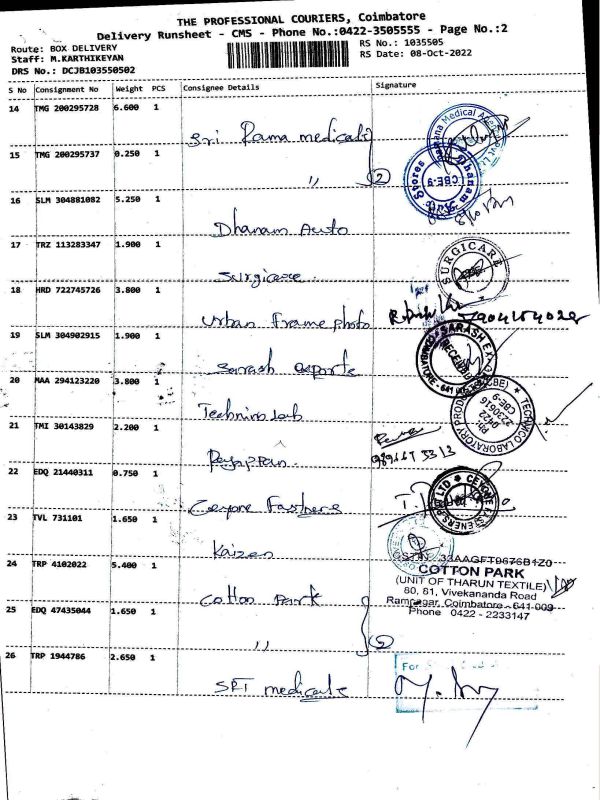 THE PROFESSIONAL COURIERS, Coimbatore
Delivery Runsheet - CMS - Phone No.:0422-3505555 - Page No.:2
Route: BOX DELIVERY
Staff: M.KARTHIKEYAN
DRS No.: DCJB103550502
RS No.: 1035505
RS Date: 08-Oct-2022
S No Consignment No Weight PCS Consignee Details Signature
14 TMG 200295728 6.600 1
Sri Rama medicals
15 TMG 200295737 0.250 1
" 2
16 SLM 304881082 5.250 1
Dhanam Auto
17 TRZ 113283347 1.900 1
Surgicare
18 HRD 722745726 3.800 1
Urban Frame photo
19 SLM 304902915 1.900 1
Sarash exports
20 MAA 294123220 3.800 1
21 TMI 30143829 2.200 1
22 EDQ 21440311 0.750 1
23 TVL 731101 1.650 1
Kaizen
24 TRP 4102022 5.400 1
Cotton Park
25 EDQ 47435044 1.650 1
"
26 TRP 1944786 2.650 1
SPT medicals
Stores
Dhanam
CBE-9
SURGICARE
SARASH
RECEIVED
TECHNICO LABORATORY
(CBE)
Ph:
0422
2230616
CBE-9
GSTIN: 33AAGFT9676B1Z0
COTTON PARK
(UNIT OF THARUN TEXTILE)
80, 81, Vivekananda Road
Ramnagar, Coimbatore - 641 009
Phone 0422 - 2233147
For